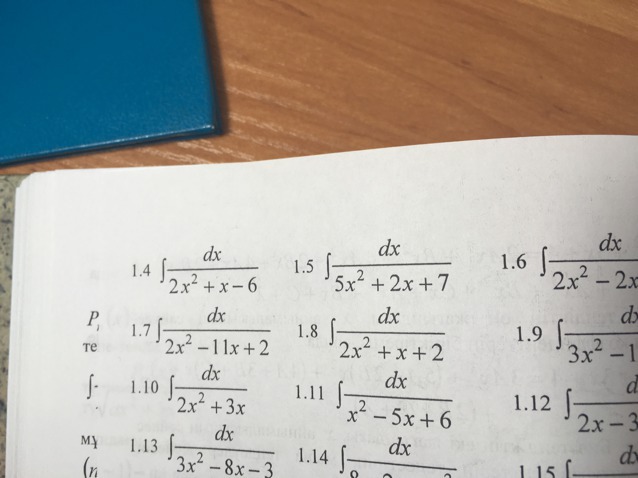 1.4 ∫ dx / (2x² + x − 6) 1.5 ∫ dx / (5x² + 2x + 7) 1.6 ∫ dx / (2x² − 2x
те 1.7 ∫ dx / (2x² − 11x + 2) 1.8 ∫ dx / (2x² + x + 2) 1.9 ∫ / (3x² − 1
1.10 ∫ dx / (2x² + 3x) 1.11 ∫ dx / (x² − 5x + 6) 1.12 ∫ / (2x − 3
1.13 ∫ dx / (3x² − 8x − 3) 1.14 ∫ dx 1.15 ∫